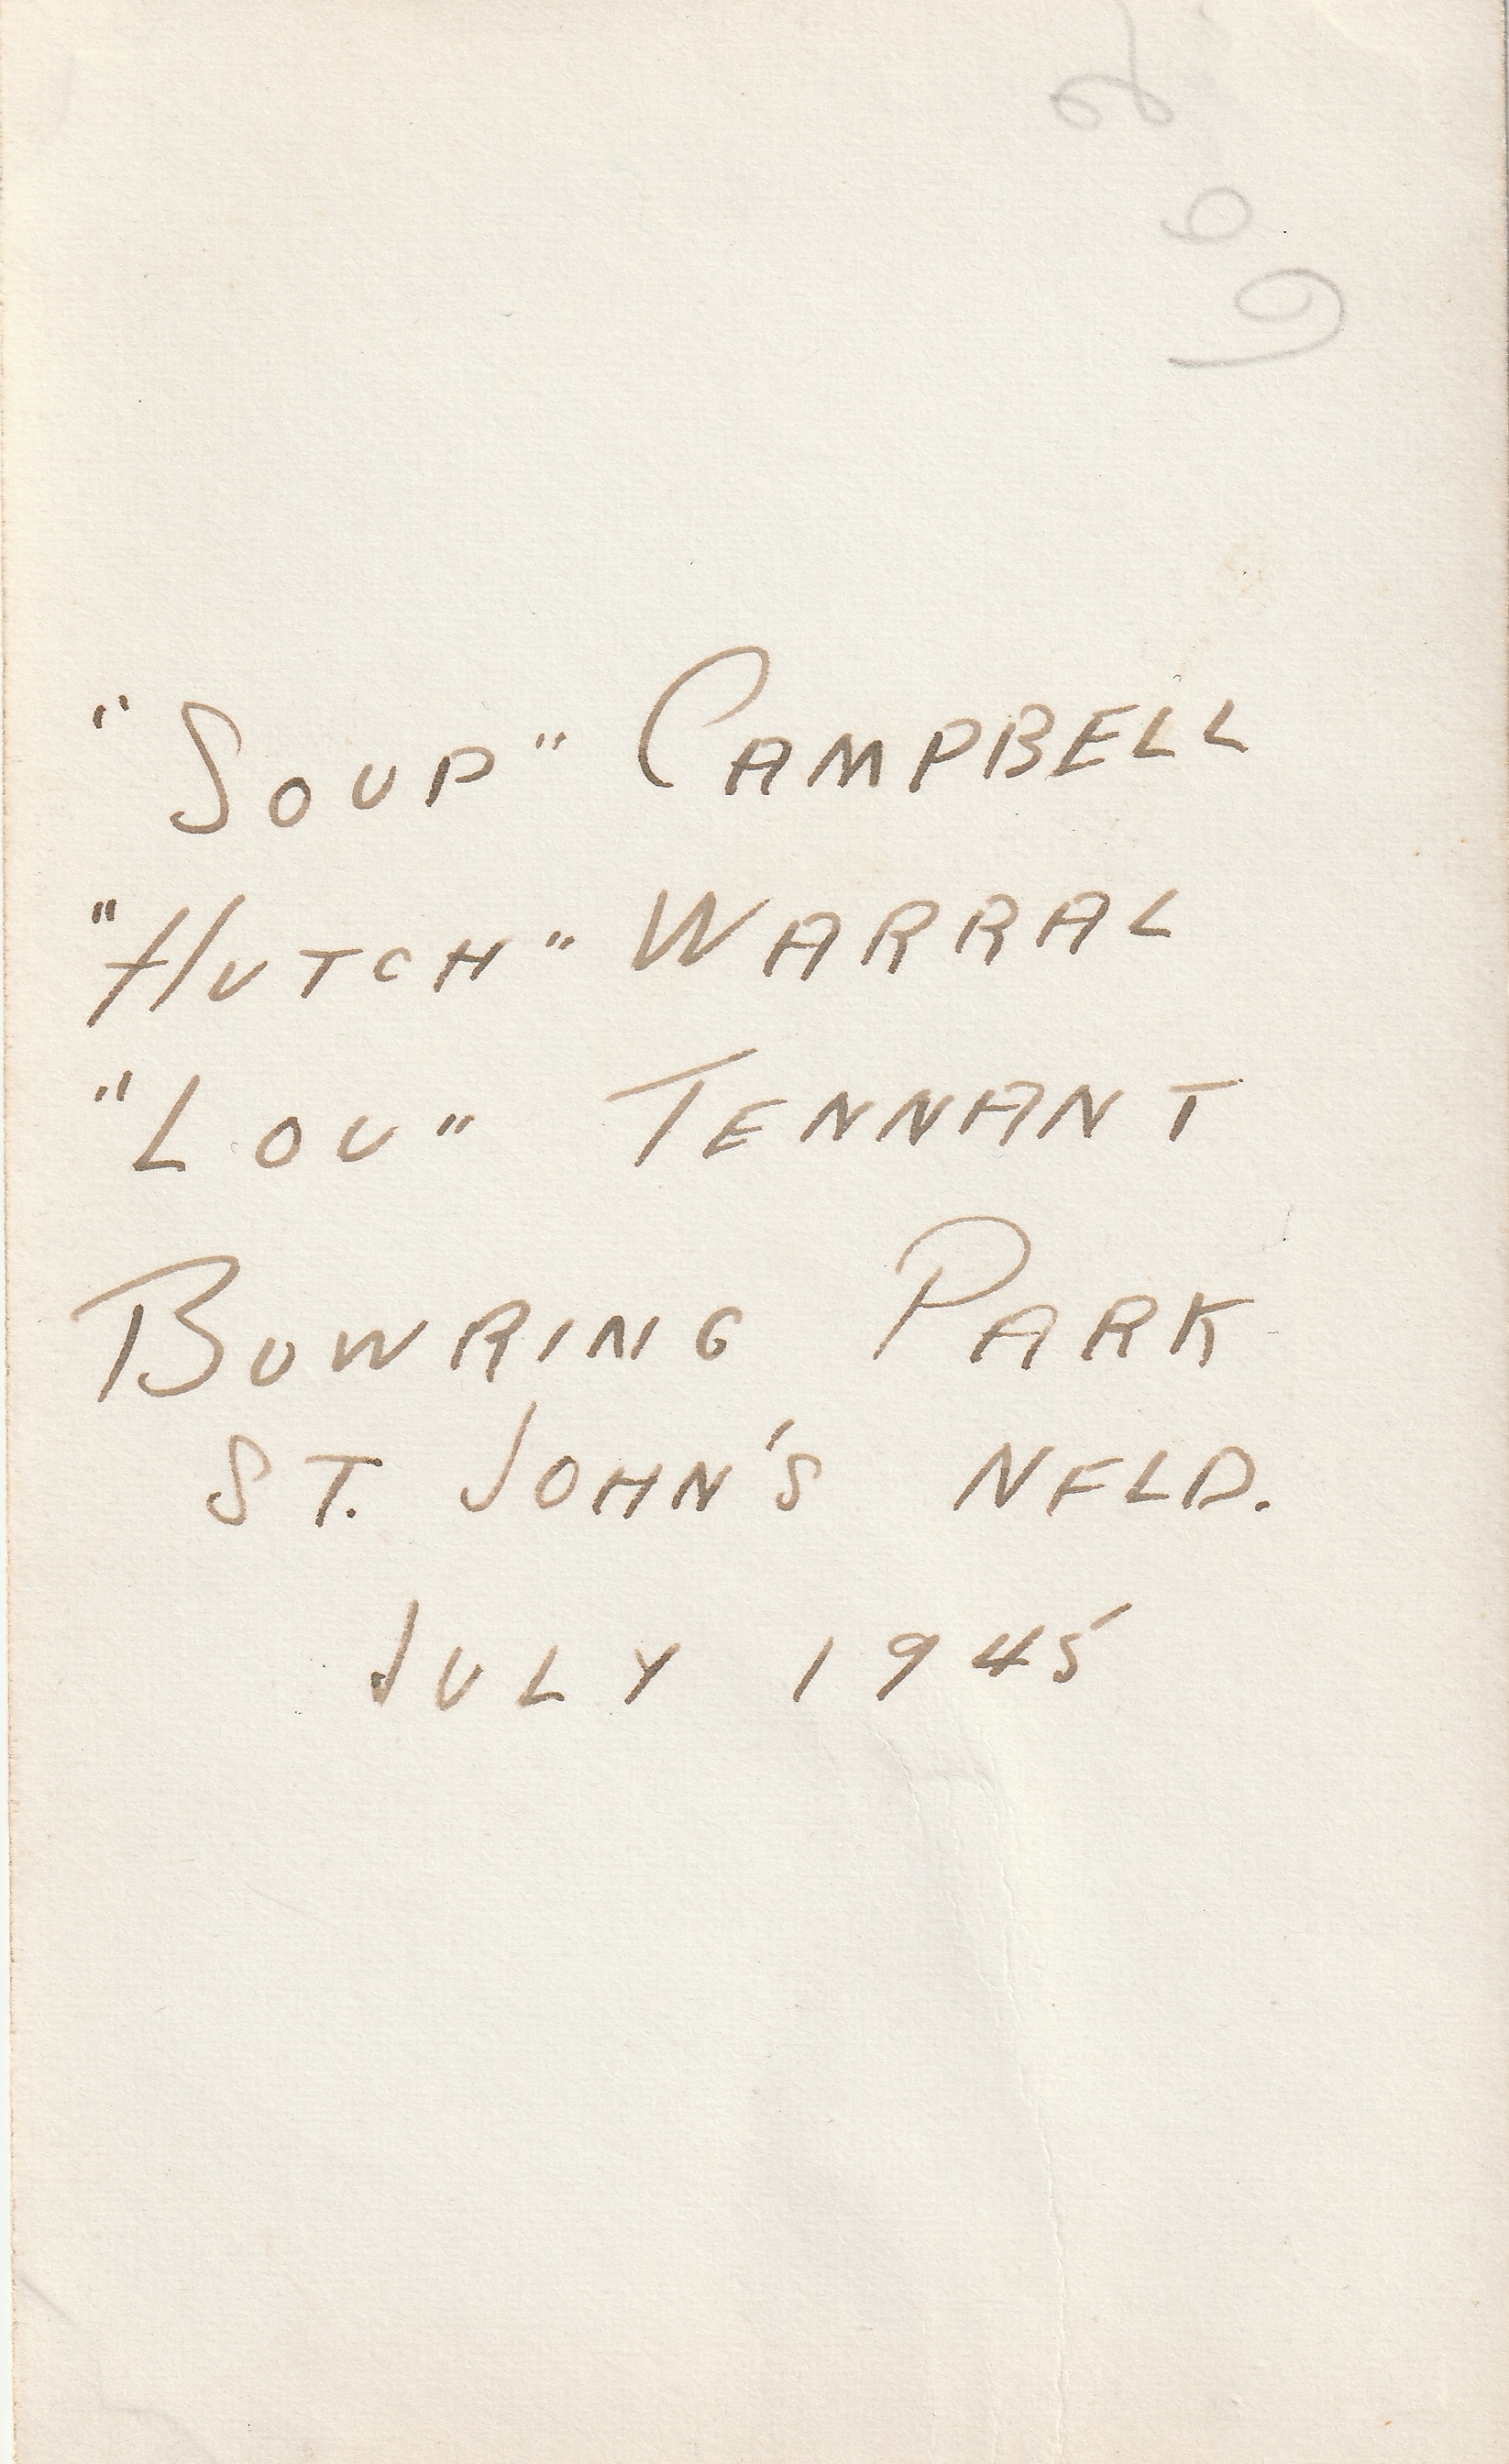 "SOUP" CAMPBELL
"HUTCH" WARRAL
"LOU" TENNANT
BOWRING PARK
ST. JOHN'S NFLD.
JULY 1945